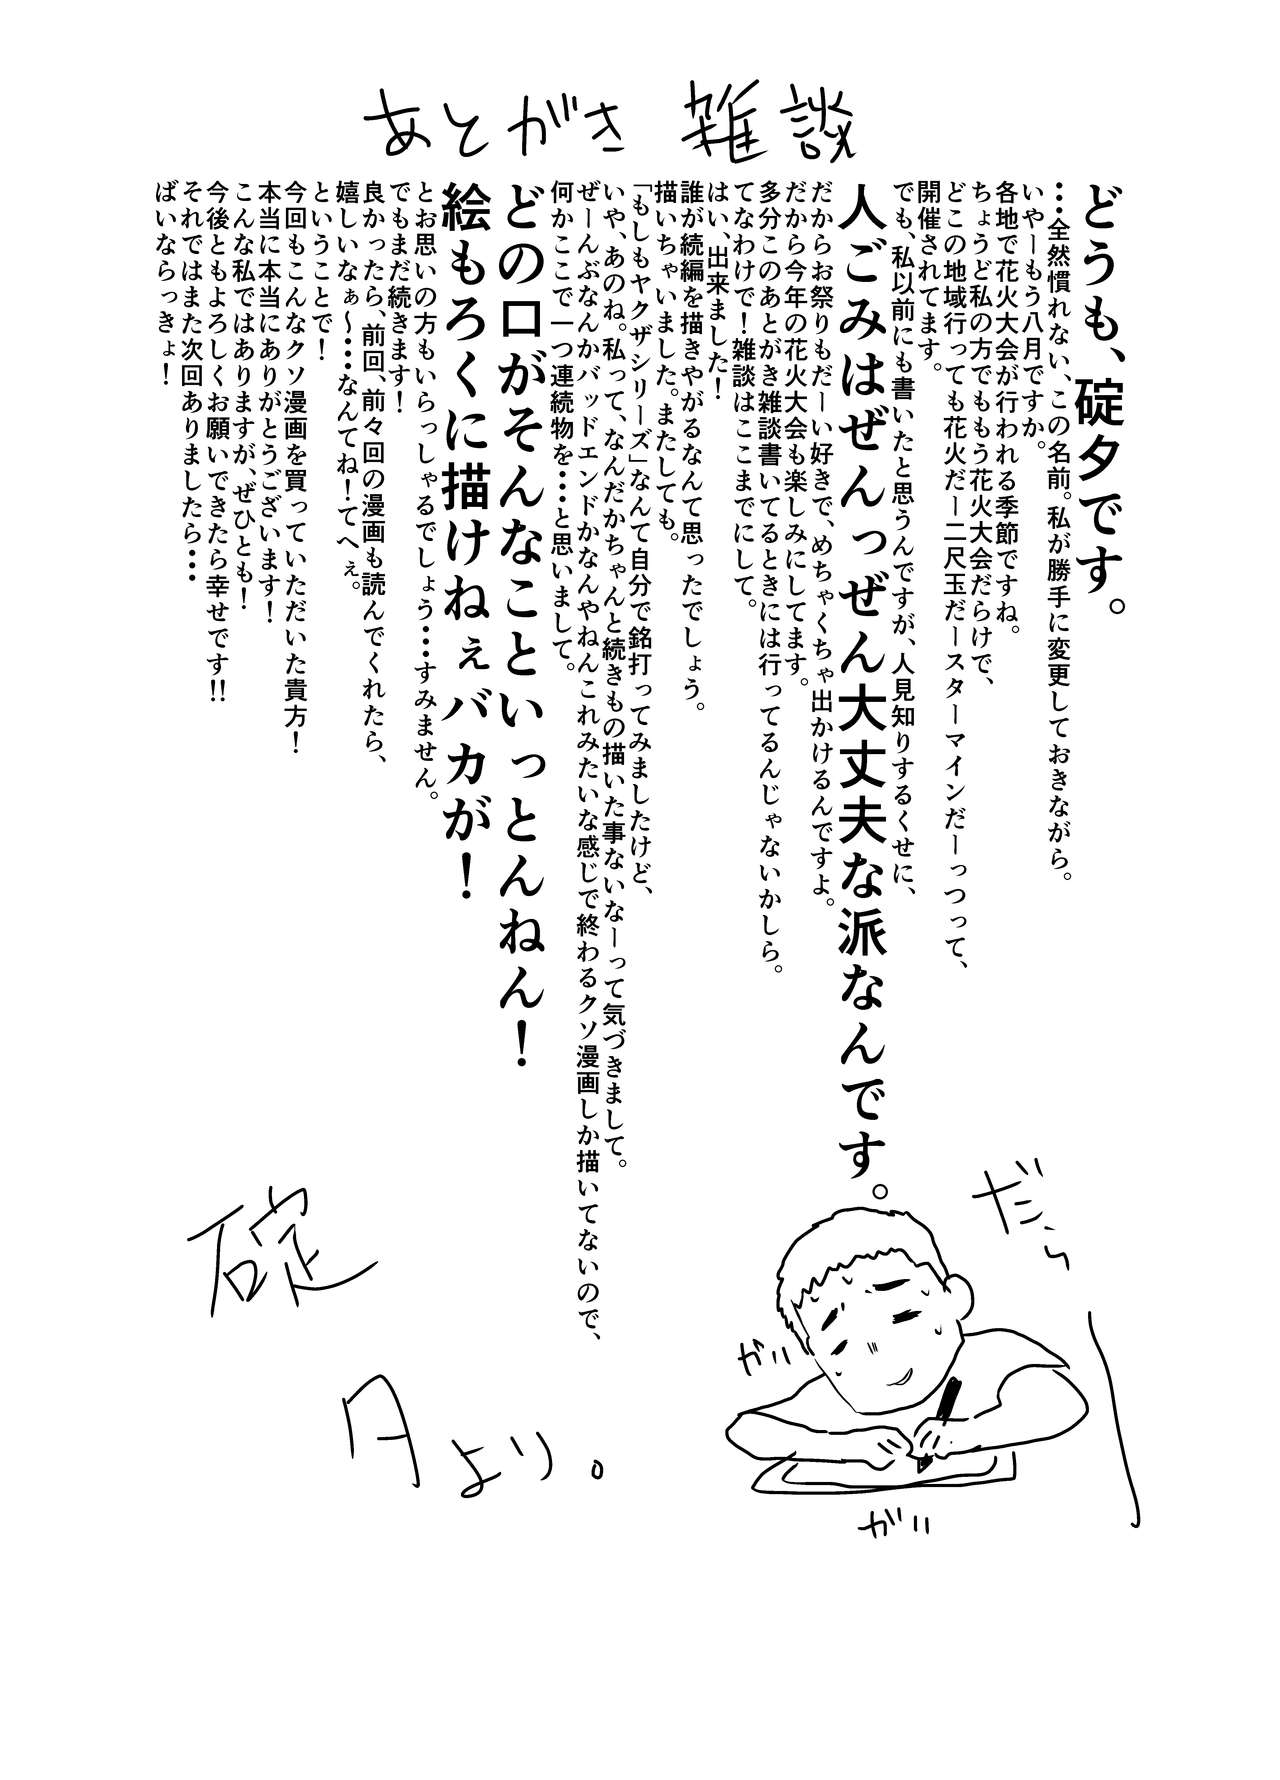 あとがき 雑談
どうも、碇夕です。
…全然慣れない、この名前。私が勝手に変更しておきながら。
いやーもう八月ですか。
各地で花火大会が行われる季節ですね。
ちょうど私の方でももう花火大会だらけで、
どこの地域行っても花火だー二尺玉だースターマインだーっつって、
開催されてます。
でも、私以前にも書いたと思うんですが、人見知りするくせに、
人ごみはぜんっぜん大丈夫な派なんです。
だからお祭りもだーい好きで、めちゃくちゃ出かけるんですよ。
だから今年の花火大会も楽しみにしてます。
多分このあとがき雑談書いてるときには行ってるんじゃないかしら。
てなわけで！雑談はここまでにして。
はい、出来ました！
誰が続編を描きやがるなんて思ったでしょう。
描いちゃいました。またしても。
「もしもヤクザシリーズ」なんて自分で銘打ってみましたけど、
いや、あのね。私って、なんだかちゃんと続きもの描いた事ないなーって気づきまして。
ぜーんぶなんかバッドエンドかなんやねんこれみたいな感じで終わるクソ漫画しか描いてないので、
何かここで一つ連続物を…と思いまして。
どの口がそんなこといっとんねん！
絵もろくに描けねぇバカが！
とお思いの方もいらっしゃるでしょう…すみません。
でもまだ続きます！
良かったら、前回、前々回の漫画も読んでくれたら、
嬉しいなぁ～…なんてね！てへぇ。
ということで！
今回もこんなクソ漫画を買っていただいた貴方！
本当に本当にありがとうございます！
こんな私ではありますが、ぜひとも！
今後ともよろしくお願いできたら幸せです!!
それではまた次回ありましたら…
ばいならっきょ！
だらー
ガリ
ガリ
碇
夕より。